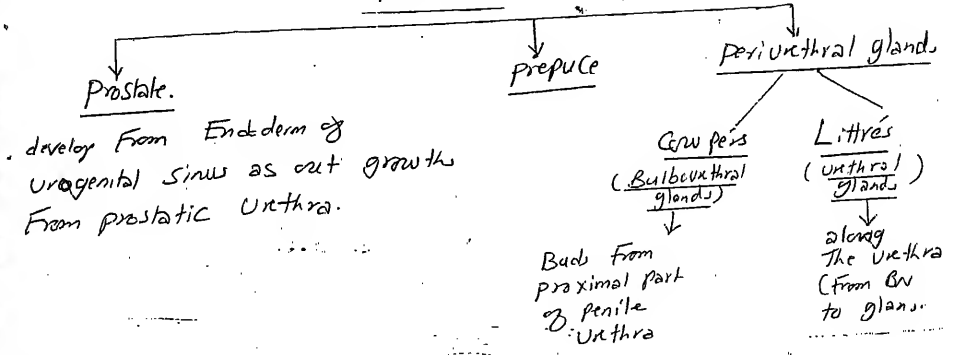 Prostate.
develop From Endoderm of
urogenital Sinus as out growth
From prostatic Urethra.
prepuce
periurethral glands
Cowper's
(Bulbourethral
glands)
Buds From
proximal part
of Penile
Urethra
Littre's
(urethral
glands)
along
The Urethra
(From BN
to glans.